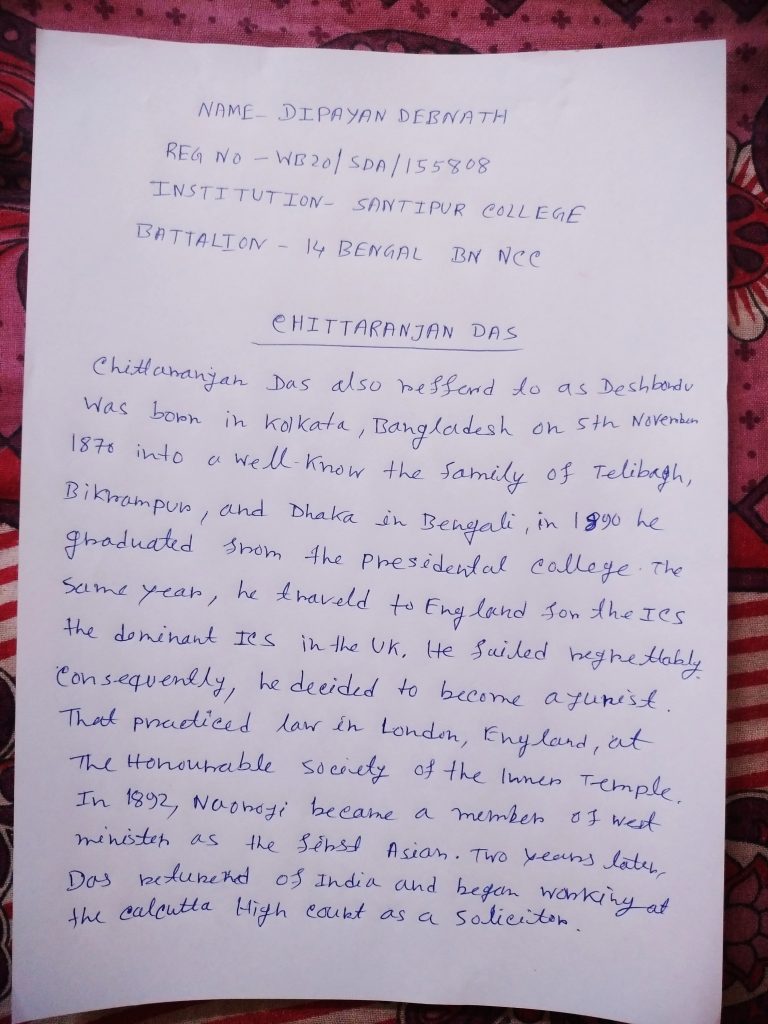 NAME- DIPAYAN DEBNATH
REG NO - WB20/SDA/155808
INSTITUTION- SANTIPUR COLLEGE
BATTALION - 14 BENGAL BN NCC
CHITTARANJAN DAS
Chittaranjan Das also refferd to as Deshbondu
was born in Kolkata, Bangladesh on 5th November
1870 into a well-know the family of Telibagh,
Bikrampur, and Dhaka in Bengali, in 1890 he
graduated from the presidental college. The
same year, he traveld to England for the ICS
the dominant ICS in the UK. He failed regrettably.
Consequently, he decided to become a jurist.
That practiced law in London, England, at
The Honourable society of the Inner Temple.
In 1892, Naoroji became a member of west
minister as the first Asian. Two years later,
Das returend of India and began working at
the calcutta High court as a Solicitor.